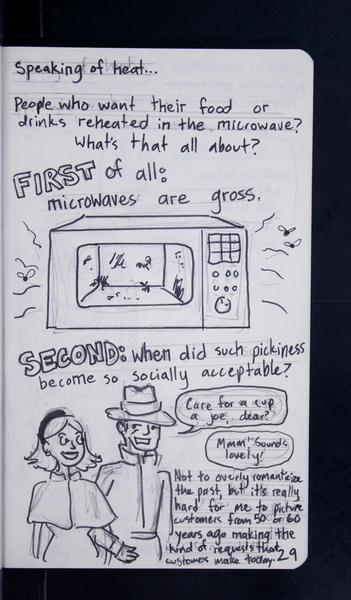 Speaking of heat...
People who want their food or
drinks reheated in the microwave?
What's that all about?
FIRST of all:
microwaves are gross.
SECOND: When did such pickiness
become so socially acceptable?
Care for a cup
a joe, dear?
Mmm! Sounds
lovely!
Not to overly romanticize
the past, but it's really
hard for me to picture
customers from 50 or 60
years ago making the
kind of requests that
customers make today.
29